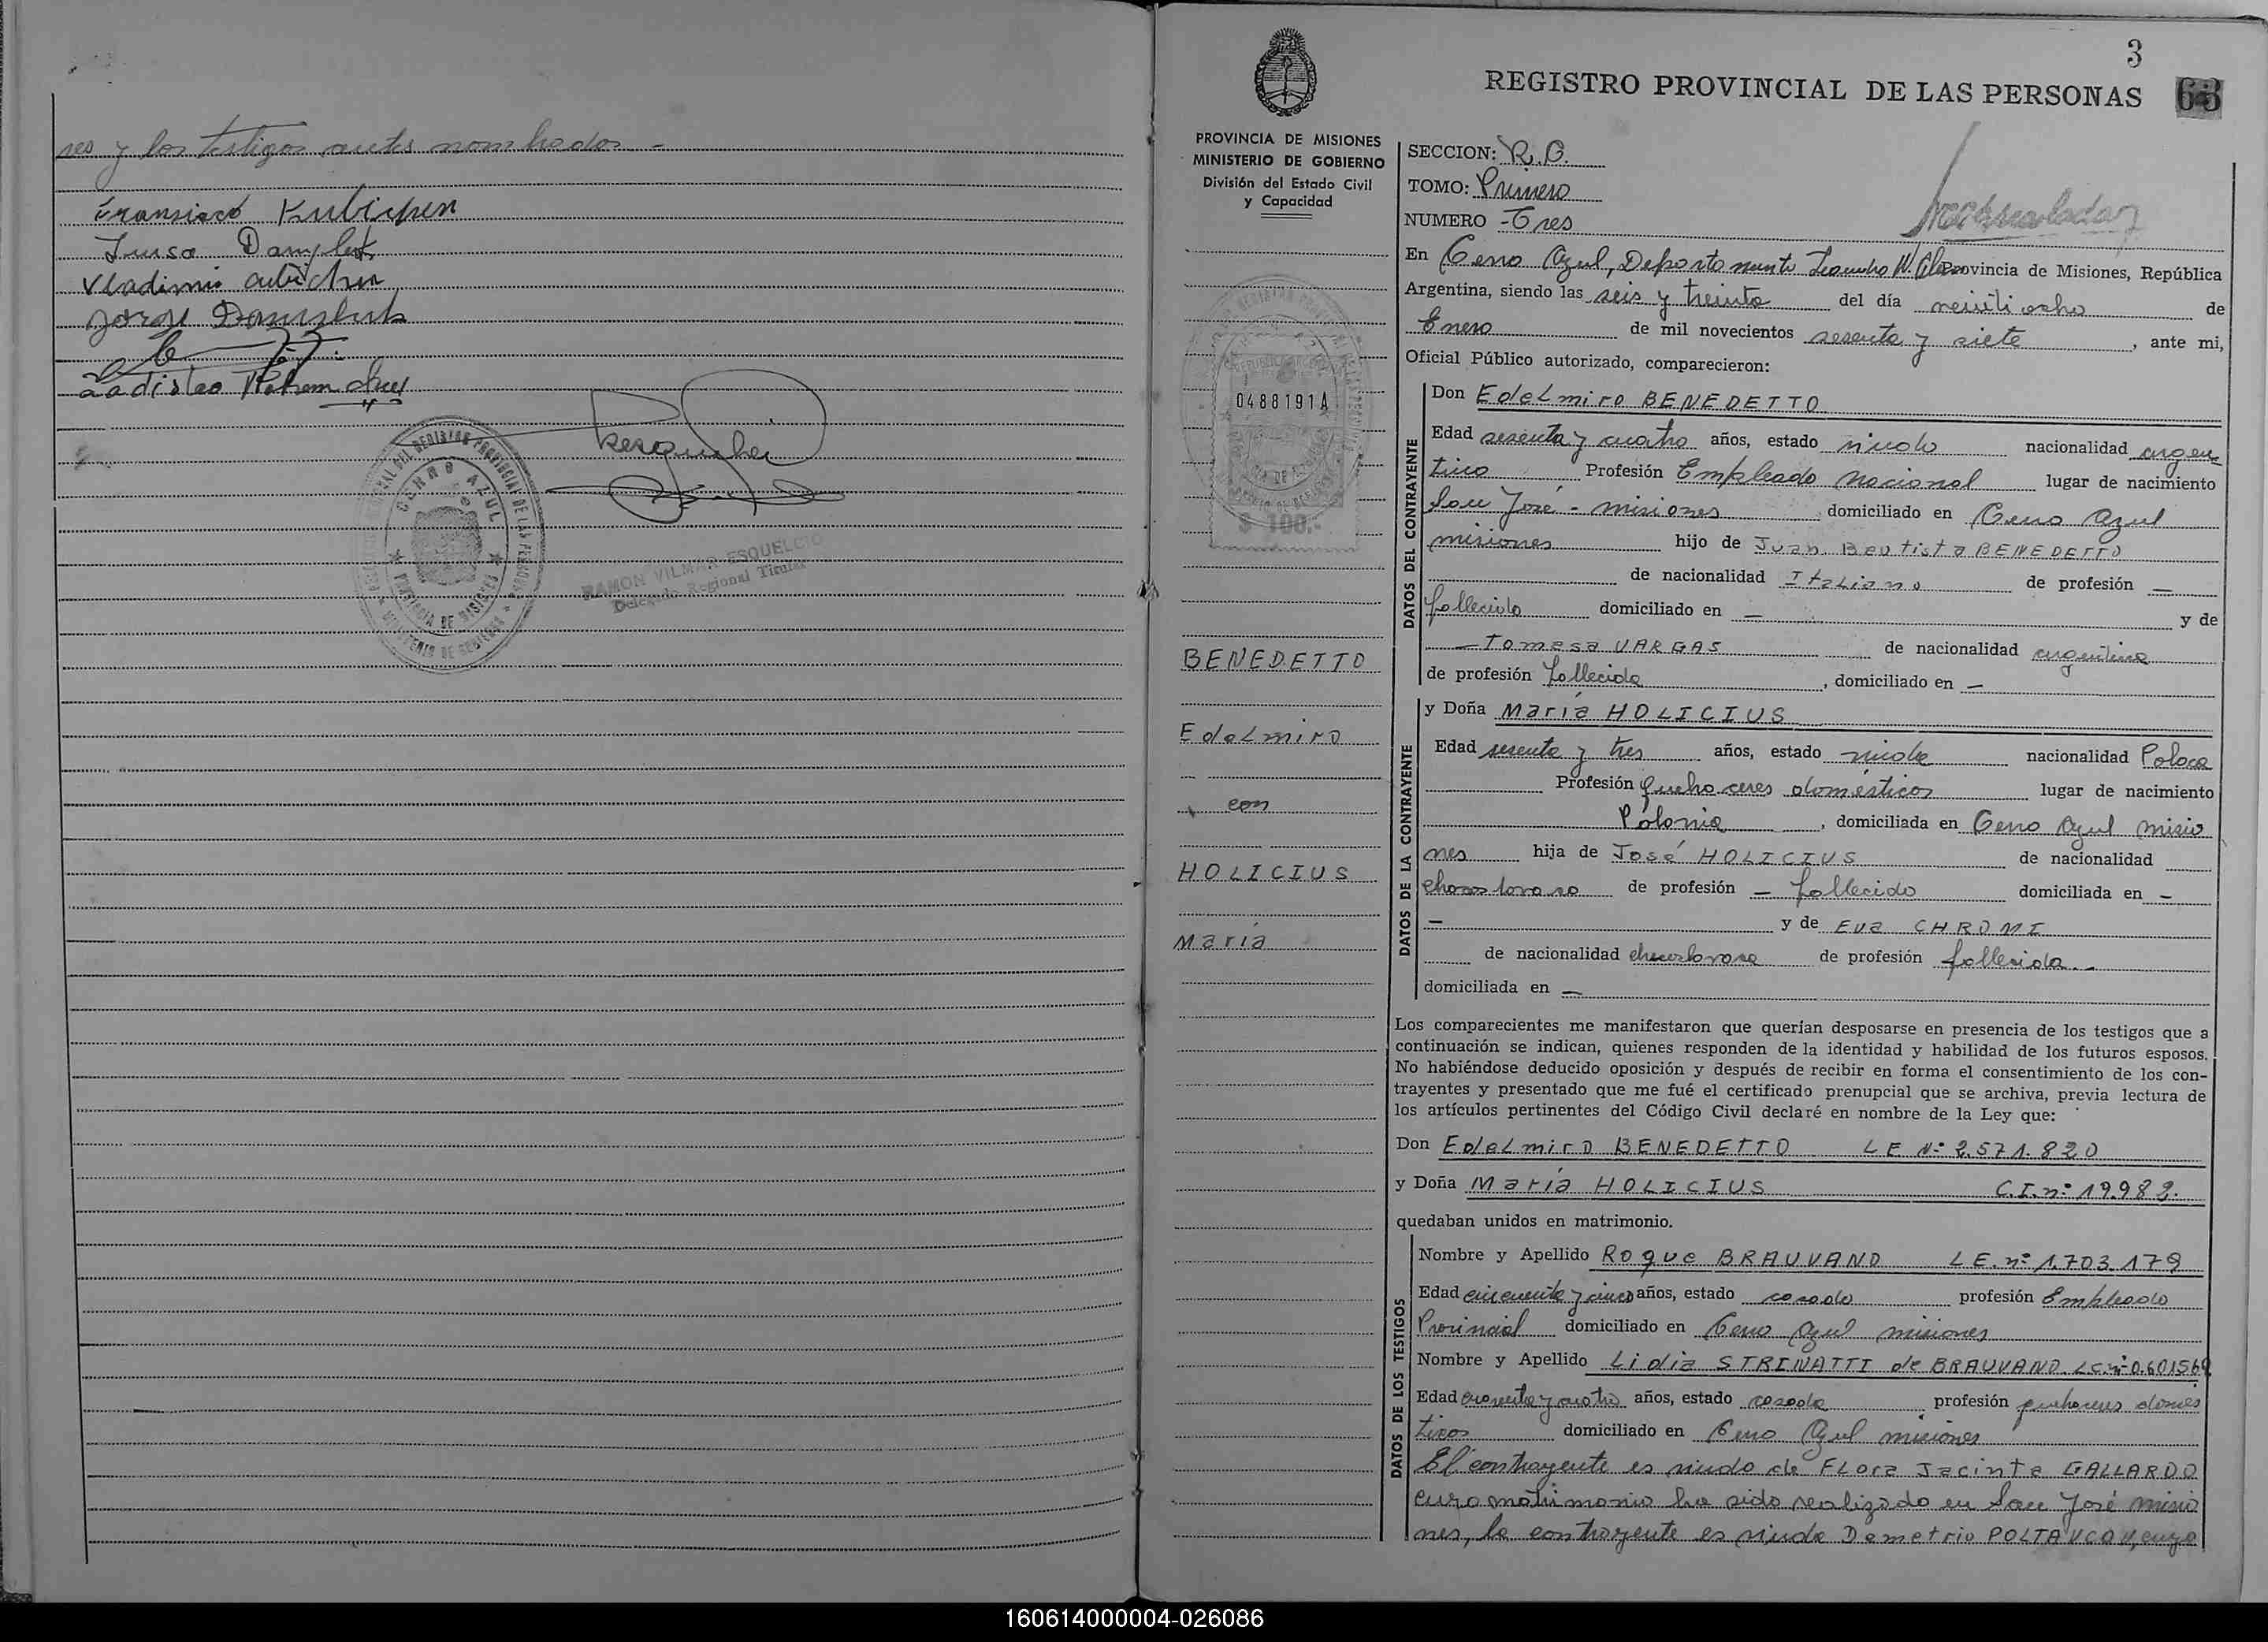 res y los testigos antes nombrados -
Luisa
Jorge
CERRO AZUL
PROVINCIA DE MISIONES
RAMON VILMAR ESQUELCIO
Delegado Regional Titular
3
REGISTRO PROVINCIAL DE LAS PERSONAS
63
PROVINCIA DE MISIONES
MINISTERIO DE GOBIERNO
División del Estado Civil
y Capacidad
0488191A
$ 100.-
BENEDETTO
Edelmiro
con
HOLICIUS
María
SECCION:
TOMO: Primero
NUMERO -Tres
En Cerro Azul, Departamento Leandro N. Alem Provincia de Misiones, República
Argentina, siendo las seis y treinta del día veintiocho de
Enero de mil novecientos sesenta y siete, ante mi,
Oficial Público autorizado, comparecieron:
DATOS DEL CONTRAYENTE
Don Edelmiro BENEDETTO
Edad sesenta y cuatro años, estado viudo nacionalidad argen
tino Profesión Empleado Nacional lugar de nacimiento
San José - misiones domiciliado en Cerro Azul
misiones hijo de Juan Bautista BENEDETTO
de nacionalidad Italiano de profesión —
fallecido domiciliado en — y de
— Tomasa VARGAS de nacionalidad argentina
de profesión fallecida, domiciliado en —
DATOS DE LA CONTRAYENTE
y Doña María HOLICIUS
Edad sesenta y tres años, estado viuda nacionalidad Polaca
Profesión quehaceres domésticos lugar de nacimiento
Polonia, domiciliada en Cerro Azul misio
nes hija de José HOLICIUS de nacionalidad
de profesión — fallecido domiciliada en —
— y de Eva CHROMI
de nacionalidad de profesión fallecida -
domiciliada en —
Los comparecientes me manifestaron que querían desposarse en presencia de los testigos que a
continuación se indican, quienes responden de la identidad y habilidad de los futuros esposos.
No habiéndose deducido oposición y después de recibir en forma el consentimiento de los con-
trayentes y presentado que me fué el certificado prenupcial que se archiva, previa lectura de
los artículos pertinentes del Código Civil declaré en nombre de la Ley que:
Don Edelmiro BENEDETTO LE Nº 2.571.820
y Doña María HOLICIUS C.I. nº 19.982.
quedaban unidos en matrimonio.
DATOS DE LOS TESTIGOS
Nombre y Apellido Roque BRAUVAND LE. nº 1.703.179
Edad cincuenta y cinco años, estado casado profesión Empleado
Provincial domiciliado en Cerro Azul misiones
Nombre y Apellido Lidia STRINATTI de BRAUVAND LC. nº 0.601569
Edad cuarenta y cuatro años, estado casada profesión quehaceres domés
ticos domiciliado en Cerro Azul misiones
El contrayente es viudo de FLora Jacinta GALLARDO
cuyo matrimonio ha sido realizado en San José misio
nes, la contrayente es viuda Demetrio cuyo
160614000004-026086